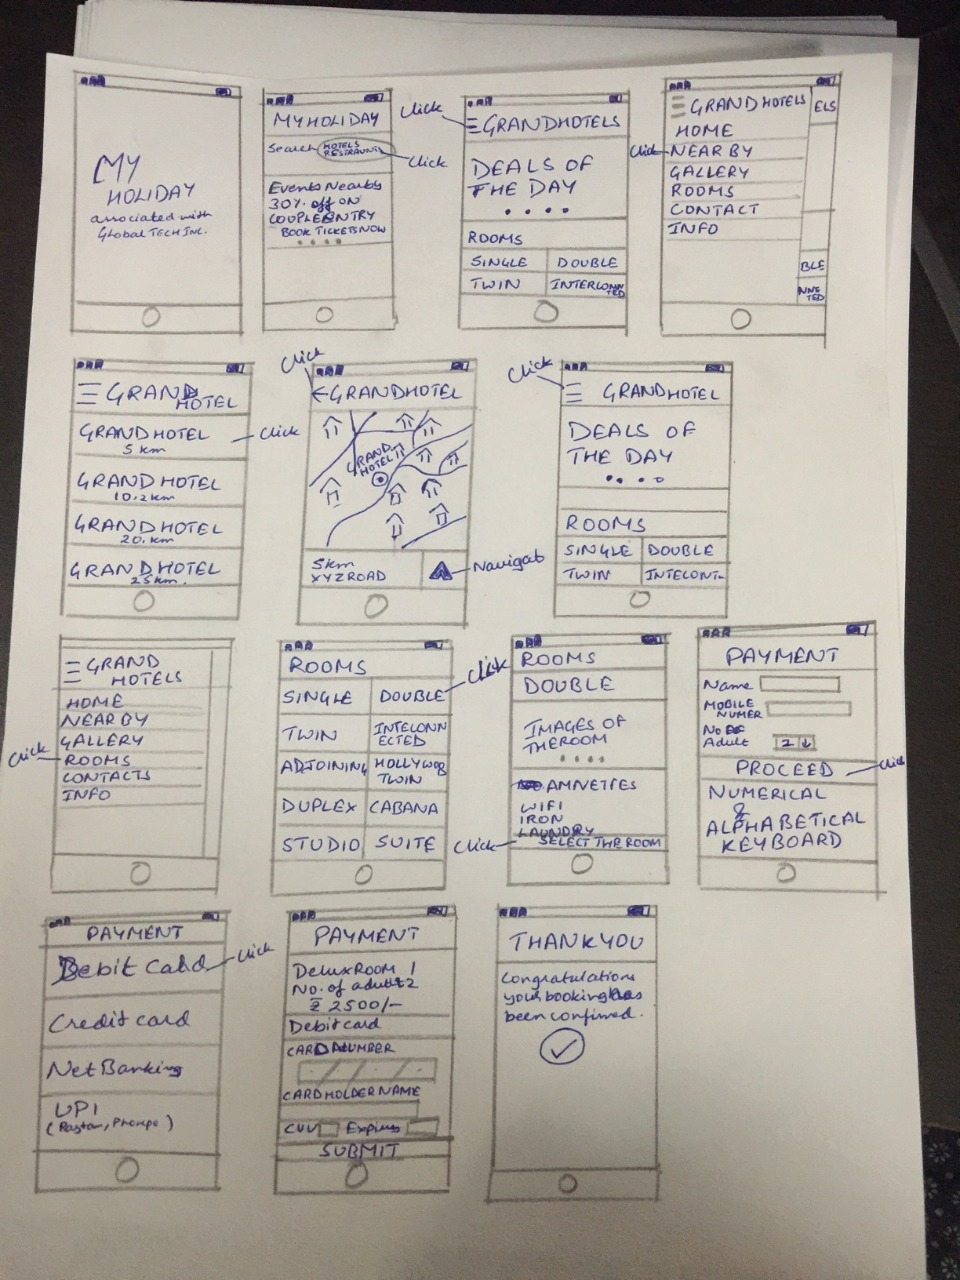 MY
HOLIDAY
associated with
Global TECH INC.
MY HOLIDAY
Search HOTELS
RESTRAUNT
Click
Events Nearby
30% off ON
COUPLE ENTRY
BOOK TICKETS NOW
Click
GRANDHOTELS
DEALS OF
THE DAY
ROOMS
SINGLE DOUBLE
TWIN INTERCONN
TED
GRANDHOTELS
ELS
HOME
Click NEAR BY
GALLERY
ROOMS
CONTACT
INFO
BLE
NNE
TED
GRAND
HOTEL
GRAND HOTEL
5 km
Click
GRAND HOTEL
10.2 km
GRAND HOTEL
20. km
GRAND HOTEL
25 km.
Click
GRANDHOTEL
GRAND
HOTEL
5km
XYZ ROAD
Navigat
Click
GRANDHOTEL
DEALS OF
THE DAY
ROOMS
SINGLE DOUBLE
TWIN INTELONT
GRAND
HOTELS
HOME
NEAR BY
GALLERY
Click ROOMS
CONTACTS
INFO
ROOMS
SINGLE DOUBLE
Click
TWIN INTELONN
ECTED
ADJOINING HOLLYWOB
TWIN
DUPLEX CABANA
STUDIO SUITE
ROOMS
DOUBLE
IMAGES OF
THE ROOM
AMNETFES
WIFI
IRON
LAUNDRY
Click SELECT THE ROOM
PAYMENT
Name
MOBILE
NUMER
No OF
Adult 2
PROCEED
Click
NUMERICAL
&
ALPHABETICAL
KEYBOARD
PAYMENT
Debit card
Click
Credit card
Net Banking
UPI
PAYMENT
Delux ROOM 1
No. of adult 2
₹ 2500/-
Debit card
CARD NUMBER
CARD HOLDER NAME
CVV Expires
SUBMIT
THANK YOU
Congratulations
your booking has
been confirmed.